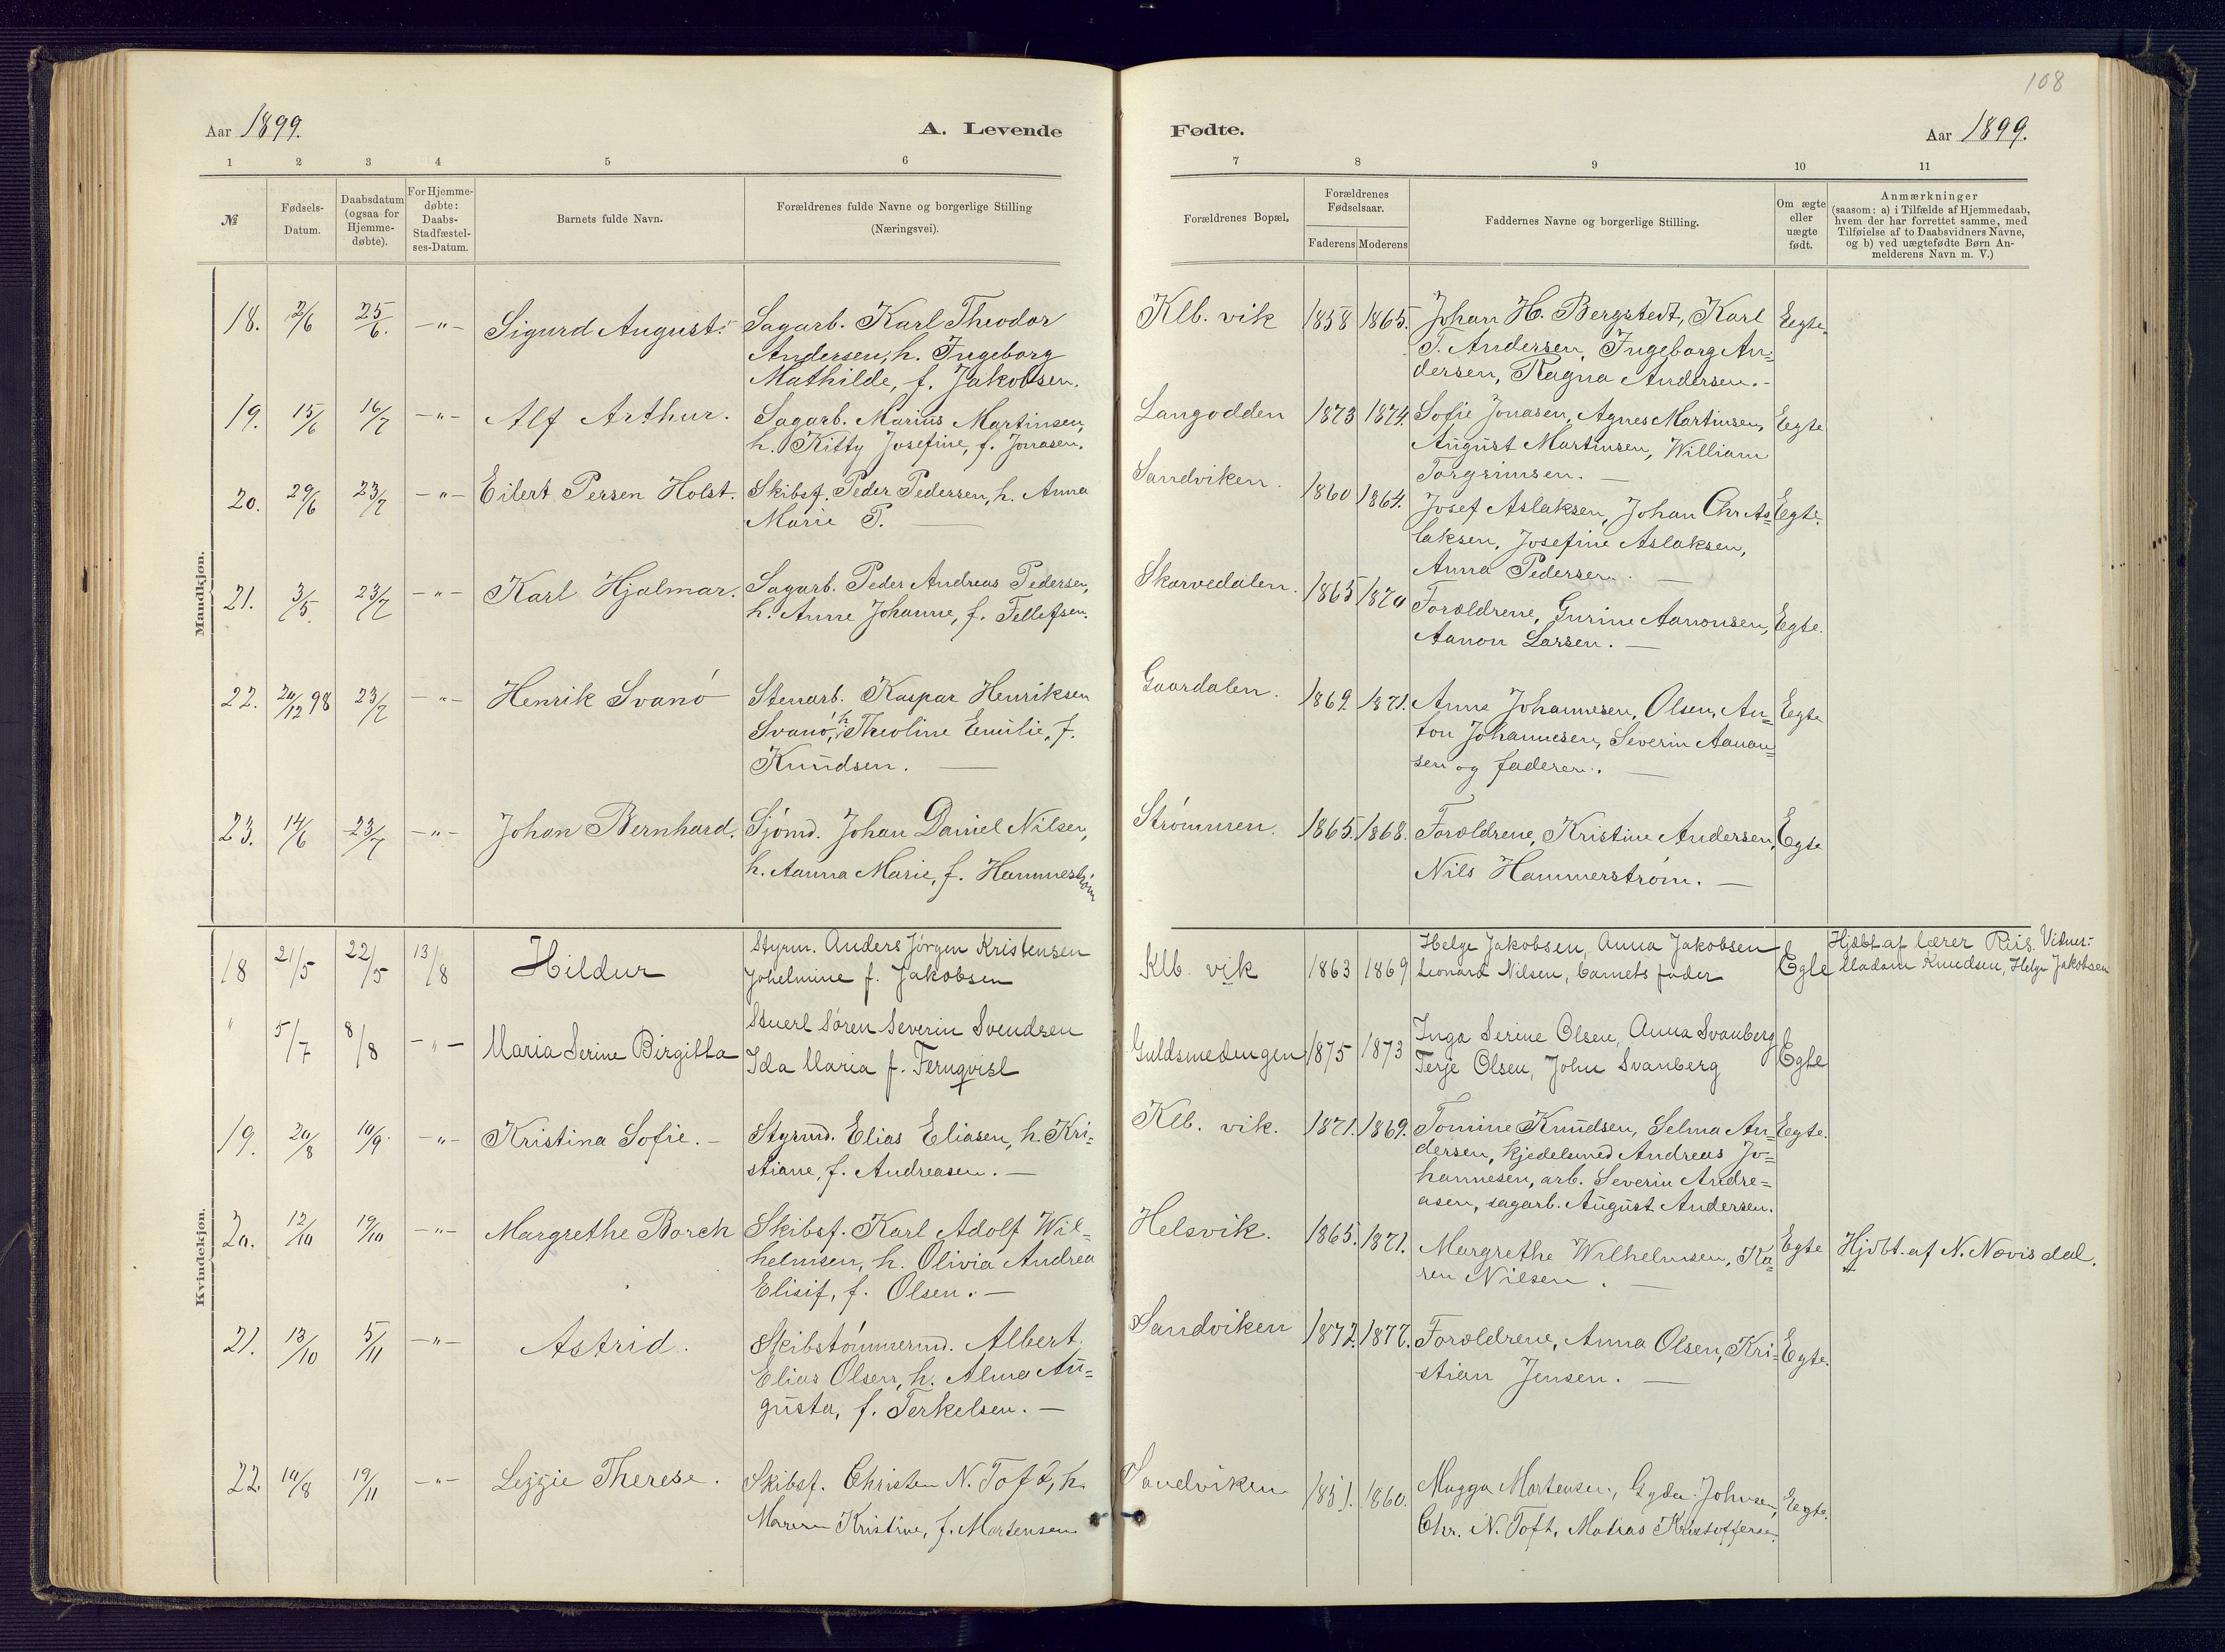 108
Aar 1899.
A. Levende
Fødte.
Aar 1899.
1 2 3 4 5 6
7 8 9 10 11
№
Fødsels-
Datum.
Daabsdatum
(ogsaa for
Hjemme-
døbte).
For Hjemme-
døbte:
Daabs-
Stadfæstel-
ses-Datum.
Barnets fulde Navn.
Forældrenes fulde Navne og borgerlige Stilling
(Næringsvei).
Forældrenes Bopæl.
Forældrenes
Fødselsaar.
Faderens Moderens
Faddernes Navne og borgerlige Stilling.
Om ægte
eller
uægte
født.
Anmærkninger
(saasom: a) i Tilfælde af Hjemmedaab,
hvem der har forrettet samme, med
Tilføielse af to Daabsvidners Navne,
og b) ved uægtefødte Børn An-
melderens Navn m. V.)
Mandkjøn.
18. 2/6 25/6. -"- Sigurd August.
Sagarb. Karl Theodor
Andersen, h. Ingeborg
Mathilde, f. Jakobsen.
Klb. vik 1858 1865.
Johan H. Bergstedt, Karl
T. Andersen, Ingeborg An=
dersen, Ragna Andersen.-
Egte.
19. 15/6 16/7 -"- Alf Arthur.
Sagarb. Marius Martinsen,
h. Kitty Josefine, f. Jonasen.
Langodden 1873 1874.
Sofie Jonasen, Agnes Martinsen,
August Martinsen, William
Torgrimsen. —
Egte
20. 29/6 23/7 -"- Eilert Persen Holst.
Skibsf. Peder Pedersen, h. Anna
Marie P. —
Sandviken. 1860 1864.
Josef Aslaksen, Johan Chr. As=
laksen, Josefine Aslaksen,
Anna Pedersen. —
Egte.
21. 3/5. 23/7 -"- Karl Hjalmar.
Sagarb. Peder Andreas Pedersen,
h. Anne Johanne, f. Tellefsen.
Skarvedalen. 1865 1870
Forældrene, Gurine Aanonsen,
Aanon Larsen. —
Egte.
22. 20/12 98 23/7 -"- Henrik Svanö
Stenarb. Kaspar Henriksen
Svanö, h. Theoline Emilie, f.
Knudsen. —
Gaardalen. 1869. 1871.
Anne Johannesen, Olsen, An=
ton Johannesen, Severin Aanon=
sen og faderen. —
Egte
23. 14/6 23/7 -"- Johan Bernhard.
Sjömd. Johan Daniel Nilsen,
h. Aanna Marie, f. Hammerström
Strömmen. 1865. 1868.
Forældrene, Kristine Andersen,
Nils Hammerström. —
Egte
Kvindekjøn.
18 21/5 22/5 13/8 Hildur
Styrm. Anders Jörgen Kristensen
Johelmine f. Jakobsen
Klb. vik 1863 1869
Helge Jakobsen, Anna Jakobsen
Leonard Nilsen, barnets fader
Egte
Hjdbt af lærer Riis. Vidner:
Madam Knudsen, Helge Jakobsen
" 5/7 8/8 -"- Maria Serine Birgitta
Stuerl Sören Severin Svendsen
Ida Maria f. Fernqvist
Guldsmedengen 1875 1873
Inga Serine Olsen, Anna Svanberg
Terje Olsen, John Svanberg
Egte
19. 20/8 10/9. -"- Kristina Sofie. -
Styrmd. Elias Eliasen, h. Kri=
stiane, f. Andreasen. —
Klb. vik. 1871. 1869.
Tomine Knudsen, Selma An=
dersen, kjedelsmed Andreas Jo=
hannesen, arb. Severin Andre=
asen, sagarb. August Andersen.
Egte.
20. 12/10 19/10 -"- Margrethe Borch
Skibsf. Karl Adolf Wil=
helmsen, h. Olivia Andrea
Elisif, f. Olsen. —
Helsvik. 1865. 1871.
Margrethe Wilhelmsen, Ka=
ren Nilsen.
Egte
Hjdbt. af N. Novisdal.
21. 13/10 5/11 -"- Astrid.
Skibstömmermd. Albert
Elias Olsen, h. Alma Au=
gusta, f. Terkelsen. —
Sandviken 1872. 1877.
Forældrene, Anna Olsen, Kri=
stian Jensen. —
Egte.
22. 10/8 19/11 -"- Lezzie Therese.
Skibsf. Christen N. Toft, h.
Maren Kristine, f. Mortensen
Sandviken 1851. 1860.
Magga Mortensen, Gyda Johnsen,
Chr. N. Toft, Matias Kristoffersen.
Egte.